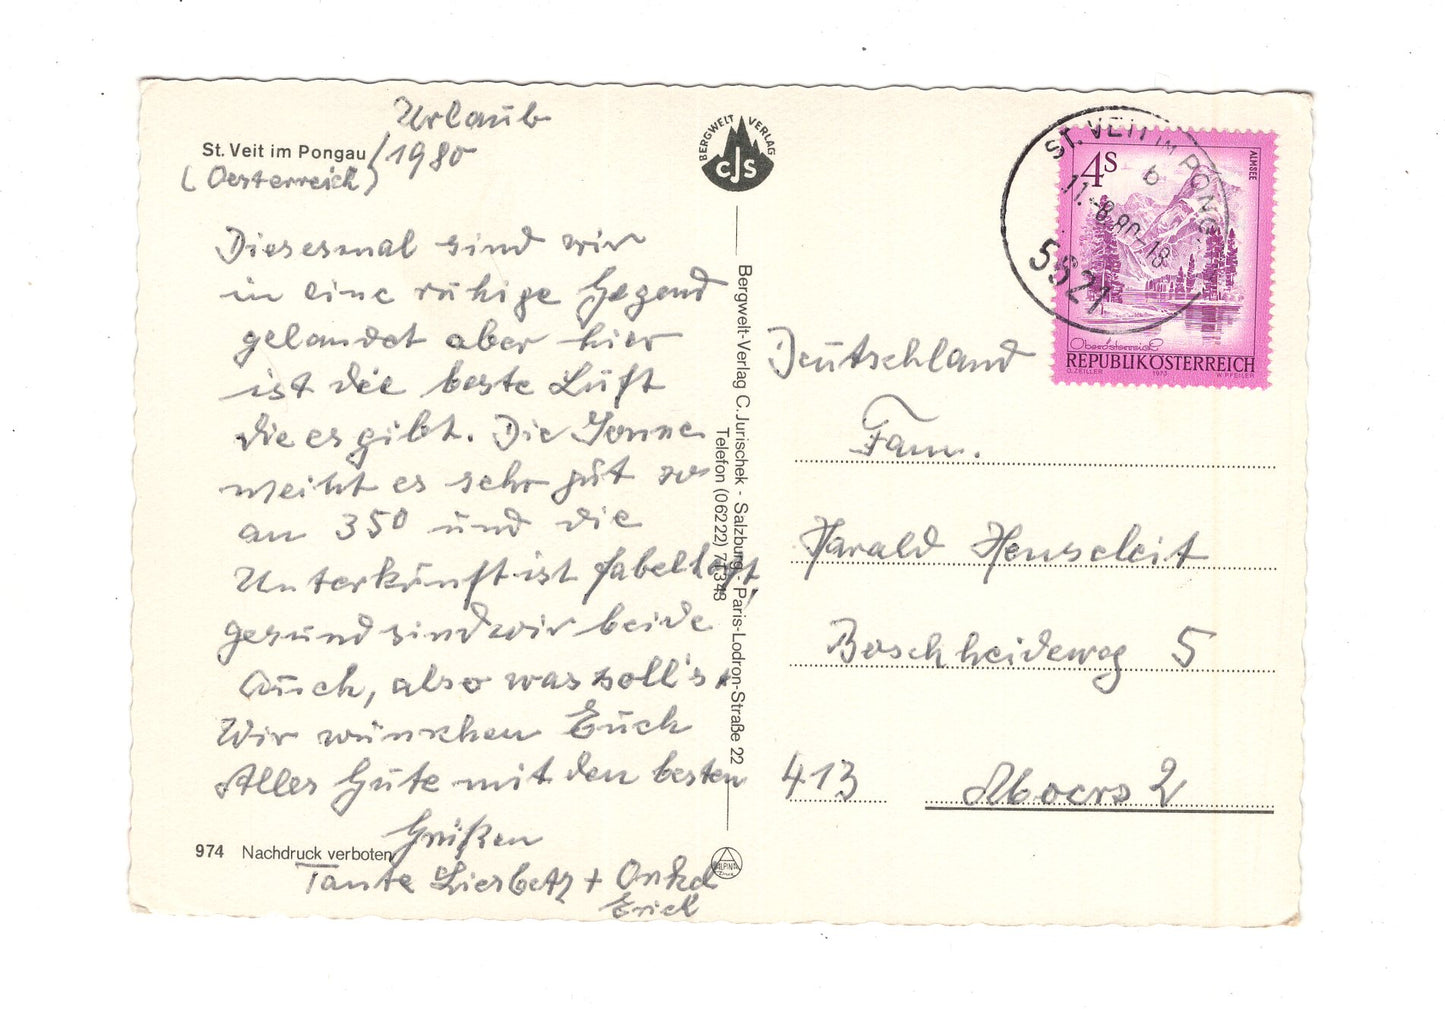 Urlaub
St. Veit im Pongau / 1980
(Oesterreich)
Diesesmal sind wir
in eine ruhige Gegend
gelandet aber hier
ist die beste Luft
die es gibt. Die Sonne
meint es sehr gut so
an 35⁰ und die
Unterkunft ist fabelhaft,
gesund sind wir beide
Auch, also was soll's.
Wir wünschen Euch
Alles Gute mit den besten
Grüßen
Tante Liesbeth + Onkel
Erich
974 Nachdruck verboten
BERGWELT VERLAG
CJS
Bergwelt-Verlag C. Jurischek - Salzburg, Paris-Lodron-Straße 22
Telefon (06222) 71343
ALPINA
ST. VEIT IM PONG.
11.-8.80-18
b
5621
4S
ALMSEE
Oberösterreich
REPUBLIK ÖSTERREICH
O. ZEILLER 1973 W. PFEILER
Deutschland
Fam.
Harald Henscleit
Boschheideweg 5
413 Moers 2